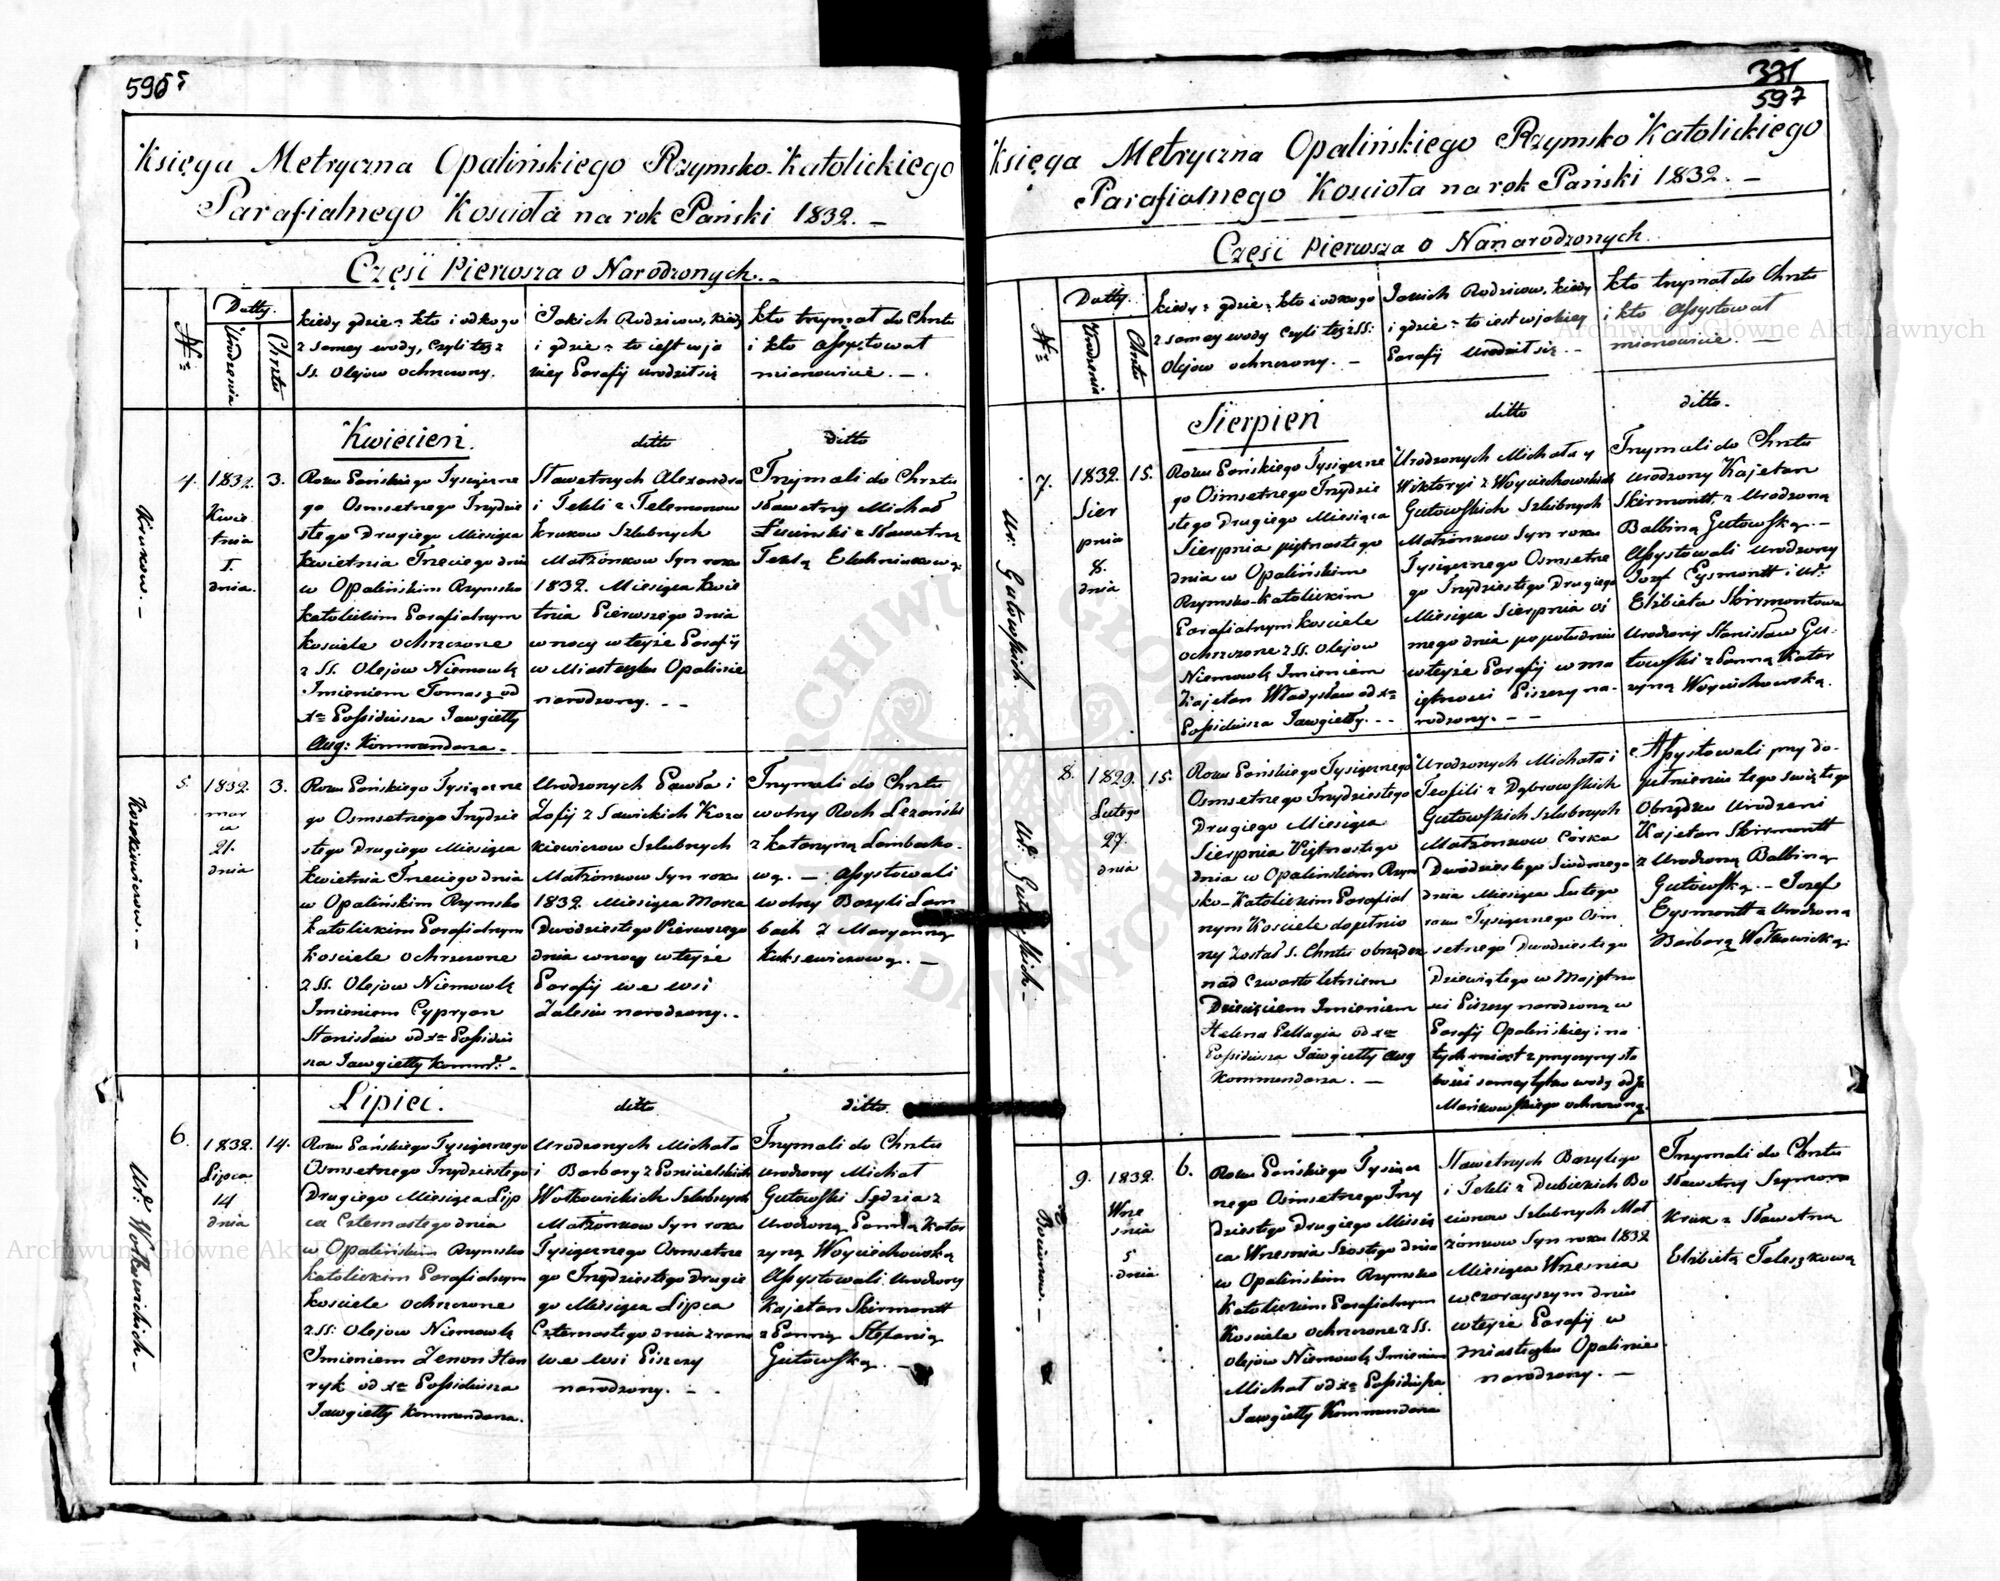 596
Księga Metryczna Opalińskiego Rzymsko-Katolickiego
Parafialnego Kościoła na rok Pański 1832. —
Części Pierwsza o Narodzonych. —
№
Datty.
Urodzenia
Chrztu
kiedy gdzie: kto i od kogo
z samey wody, czyli też z
SS. Olejów ochrzczony.
Jakich Rodziców, kiedy
i gdzie: to iest w ja
kiey Parafij urodził się
kto trzymał do Chrztu
i kto assystował
mianowicie. —
Kwiecień.
ditto
ditto
Kruków. —
4.
1832.
Kwie
tnia
I.
dnia.
3.
Roku Pańskiego Tysiączne
go Osmsetnego Trzydzie
stego Drugiego Miesiąca
Kwietnia Trzeciego dnia
w Opalińskim Rzymsko
Katolickim Parafialnym
Kościele ochrzczone
z SS. Olejów Niemowlę
Imieniem Tomasz od
Xa Possidiusza Jawgiełły
Aug: Kommendarza. —
Sławetnych Alexandra
i Tekli z Telemonow
Kruków Szlubnych
Małżonków Syn roku
1832. Miesiąca Kwie
tnia Pierwszego dnia
w nocy w teyże Parafij
w Miasteczku Opalinie
narodzony. —
Trzymali do Chrztu
Sławetny Michał
z Sławetną
Teklą
Kozakiewiczow. —
5.
1832.
mar
ca
21.
dnia
3.
Roku Pańskiego Tysiączne
go Osmsetnego Trzydzie
stego Drugiego Miesiąca
Kwietnia Trzeciego dnia
w Opalińskim Rzymsko
Katolickim Parafialnym
Kościele ochrzczone
z SS. Olejów Niemowlę
Imieniem Cypryan
Stanisław od Xa Possidiu
sza Jawgiełły Komm. —
Urodzonych Pawła i
Zofij z Sawickich Koza
kiewiczow Szlubnych
Małżonków Syn roku
1832. Miesiąca Marca
Dwódziestego Pierwszego
dnia w nocy w teyże
Parafij we wsi
Zalesiu narodzony. —
Trzymali do Chrztu
wolny Roch
z Katarzyną Lambacho-
wą. — Assystowali
wolny Bazyli Lam
bach z Maryanną
Kuksewiczową. —
Lipiec.
ditto
ditto
Ur: Wołkowickich —
6.
1832.
Lipca
14
dnia
14.
Roku Pańskiego Tysiącznego
Osmsetnego Trzydziestego
Drugiego Miesiąca Lip
ca Czternastego dnia
w Opalińskim Rzymsko
Katolickim Parafialnym
Kościele ochrzczone
z SS. Olejów Niemowlę
Imieniem Zenon Hen
ryk od Xa Possidiusza
Jawgiełły Kommendarza.
Urodzonych Michała
i Barbary z
Wołkowickich Szlubnych
Małżonków Syn roku
Tysiącznego Osmsetne
go Trzydziestego Drugie
go Miesiąca Lipca
Czternastego dnia z rana
we wsi Piszczy
narodzony. —
Trzymali do Chrztu
urodzony Michał
Gutowski Sędzia z
Urodzoną Panną Katar
zyną Woyciechowską
Assystowali Urodzony
Kajetan Skirmontt
z Panną Stefanią
Gutowską. —
331
597
Księga Metryczna Opalińskiego Rzymsko Katolickiego
Parafialnego Kościoła na rok Pański 1832. —
Części Pierwsza o Nanarodzonych.
№
Datty.
Urodzenia
Chrztu
kiedy: gdzie: kto i od kogo
z samey wody czyli też z SS:
Olejów ochrzczony. —
Jakich Rodziców, kiedy
i gdzie: to iest w jakiey
Parafij urodził się. —
kto trzymał do Chrztu
i kto Assystował
mianowicie. —
Sierpień
ditto
ditto.
Ur: Gutowskich.
7.
1832.
Sier
pnia
8.
dnia
15.
Roku Pańskiego Tysiączne
go Osmsetnego Trzydzie
stego Drugiego Miesiąca
Sierpnia piętnastego
dnia w Opalińskim
Rzymsko-Katolickim
Parafialnym Kościele
ochrzczone z SS. Olejów
Niemowlę Imieniem
Kajetan Władysław od Xa
Possidiusza Jawgiełły. —
Urodzonych Michała y
Wiktoryi z Woyciechowskich
Gutowskich Szlubnych
Małżonków Syn roku
Tysiącznego Osmsetne
go Trzydziestego Drugiego
Miesiąca Sierpnia ós
mego dnia po południu
w teyże Parafij w ma
iętności Piszczy na-
rodzony. —
Trzymali do Chrztu
urodzony Kajetan
Skirmontt z Urodzoną
Balbiną Gutowską. —
Assystowali Urodzony
Jozef Eysmontt i Ur:
Elżbieta Skirmontowa
Urodzony Stanisław Gu-
towski z Panną Katar
zyną Woyciechowską.
Ur: Gutowskich —
8.
1829.
Lutego
27.
dnia
15.
Roku Pańskiego Tysiącznego
Osmsetnego Trzydziestego
Drugiego Miesiąca
Sierpnia Piętnastego
dnia w Opalińskim Rzym
sko-Katolickim Parafial
nym Kościele dopełnio
ny został S. Chrztu obrządek
nad Czwarto letniem
Dziecięciem Imieniem
Helena Pellagia od Xa
Possidiusza Jawgiełły Aug
Kommendarza. —
Urodzonych Michała i
Teofili z Dąbrowskich
Gutowskich Szlubnych
Małżonków Córka
Dwódziestego Siódmego
dnia Miesiąca Lutego
roku Tysiącznego Osm
setnego Dwódziestego
Dziewiątego w Majętno
ści Piszczy narodzona w
Parafij Opalińskiey i na
tychmiast z przyczyny sła
bości samey tylko wody od X
Mańkowskiego ochrzczoną.
Assystowali przy do-
pełnieniu tego świętego
Obrządku Urodzeni
Kajetan Skirmontt
z Urodzoną Balbiną
Gutowską. — Jozef
Eysmontt z Urodzoną
Barbarą Wołkowicką.
Bociurow. —
9.
1832.
Wrze
śnia
5
dnia
6.
Roku Pańskiego Tysiącz
nego Osmsetnego Trzy
dziestego Drugiego Miesią
ca Wrzesnia Szóstego dnia
w Opalińskim Rzymsko
Katolickim Parafialnym
Kościele ochrzczone z SS.
Olejów Niemowlę Imieniem
Michał od Xa Possidiusza
Jawgiełły Kommendarza
Sławetnych Bazylego
i Tekli z Dubickich Bo
ciurow Szlubnych Mał
żonków Syn roku 1832
Miesiąca Wrzesnia
wczorayszym dniu
w teyże Parafij w
miasteczku Opalinie
narodzony. —
Trzymali do Chrztu
Sławetny Szymon
Kruk z Sławetną
Elżbietą Teleszkową
Archiwum Główne Akt Dawnych
Archiwum Główne Akt Dawnych